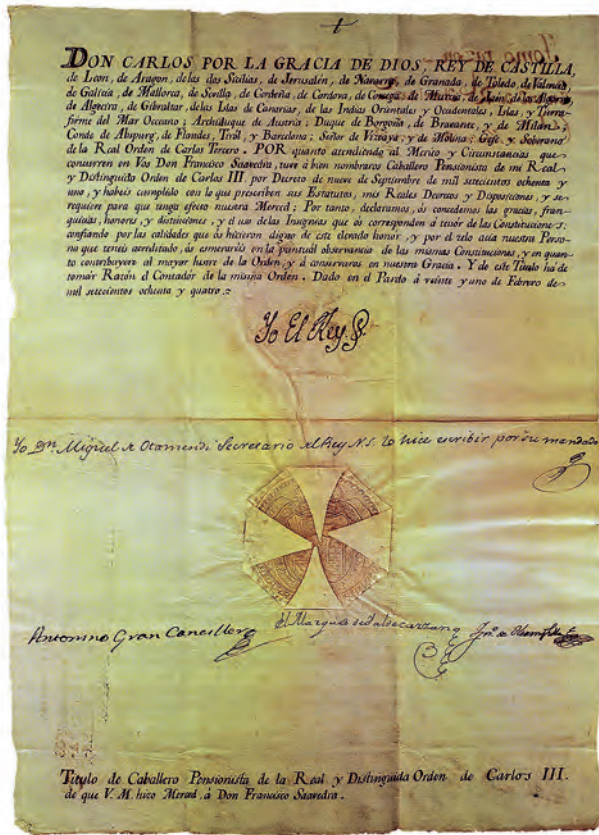 DON CARLOS POR LA GRACIA DE DIOS, REY DE CASTILLA,
de Leon, de Aragon, de las dos Sicilias, de Jerusalén, de Navarra, de Granada, de Toledo, de Valencia,
de Galicia, de Mallorca, de Sevilla, de Cerdeña, de Cordova, de Corcega, de Murcia, de Jaen, de los Algarves,
de Algecira, de Gibraltar, de las Islas de Canarias, de las Indias Orientales y Occidentales, Islas, y Tierra-
firme del Mar Oceano; Archiduque de Austria; Duque de Borgoña, de Bravante, y de Milan;
Conde de Abspurg, de Flandes, Tiról, y Barcelona; Señor de Vizcaya, y de Molina; Gefe, y Soberano
de la Real Orden de Carlos Tercero. POR quanto atendiendo al Merito y Circunstancias que
concurren en Vos Don Francisco Saavedra, tuve á bien nombraros Caballero Pensionista de mi Real
y Distinguida Orden de Carlos III, por Decreto de nueve de Septiembre de mil setecientos ochenta y
uno, y habeis cumplido con lo que prescriben sus Estatutos, mis Reales Decretos y Disposiciones, y se
requiere para que tenga efecto nuestra Merced; Por tanto, declaramos, ós concedemos las gracias, fran-
quicias, honores, y distinciones, y el uso de las Insignias que ós corresponden á tenór de las Constituciones;
confiando por las calidades que ós hicieron digno de este elevado honór, y por el zelo acia nuestra Perso-
na que teneis acreditado, ós esmeraréis en la puntual observancia de las mismas Constituciones, y en quan-
to contribuyere al mayor lustre de la Orden, y á conservaros en nuestra Gracia. Y de este Titulo ha de
tomár Razón el Contador de la misma Orden. Dado en el Pardo á veinte y uno de Febrero de
mil setecientos ochenta y quatro.
Yo El Rey
Yo Dn. Miguel de Otamendi Secretario del Rey N.S. lo hice escribir por su mandado
Antonino Gran Canciller
El Marques de Valdecarzana
Titulo de Caballero Pensionista de la Real y Distinguida Orden de Carlos III.
de que V. M. hizo Merced, á Don Francisco Saavedra.